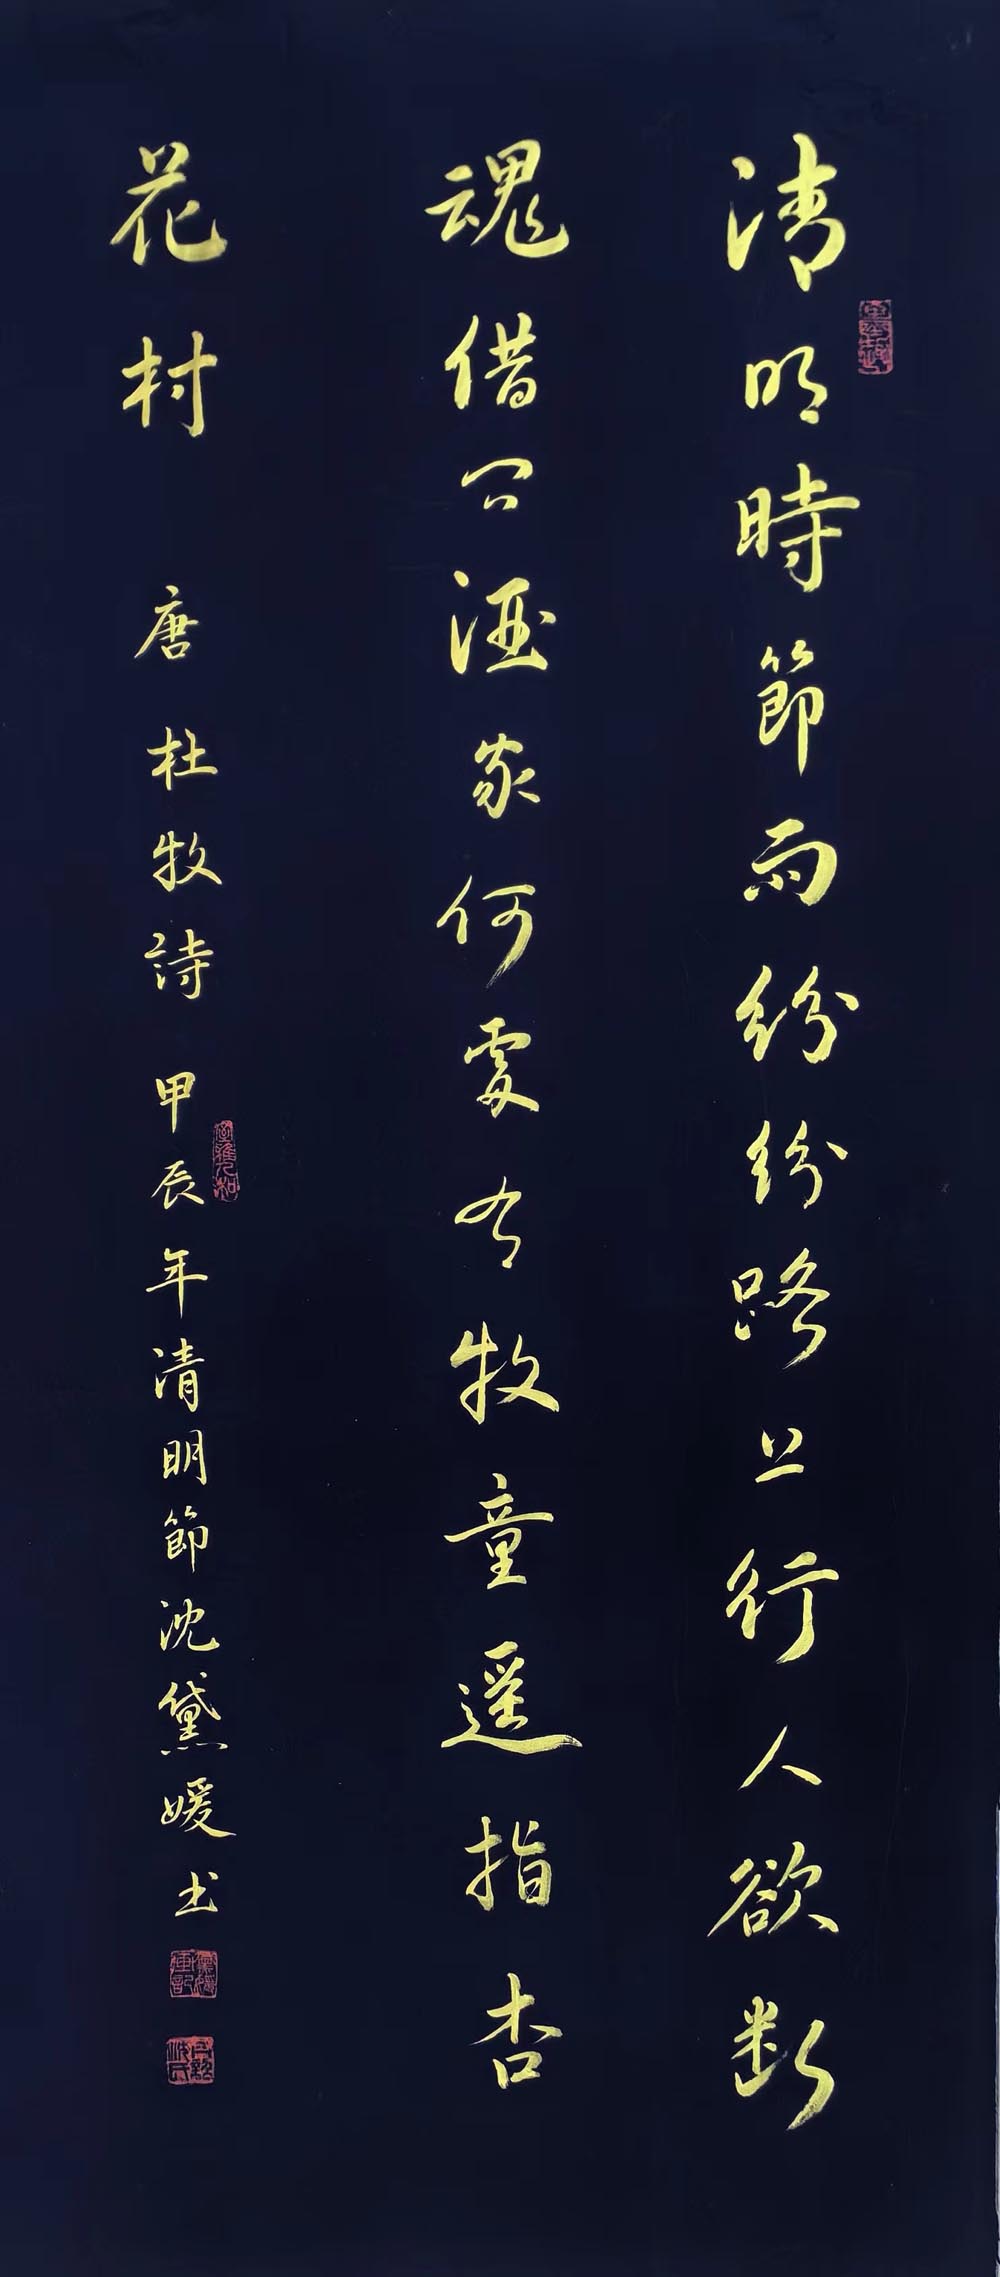 清明時節雨紛紛路上行人欲断
魂借问酒家何處有牧童遥指杏
花村 唐 杜牧詩 甲辰年清明節沈黛媛书